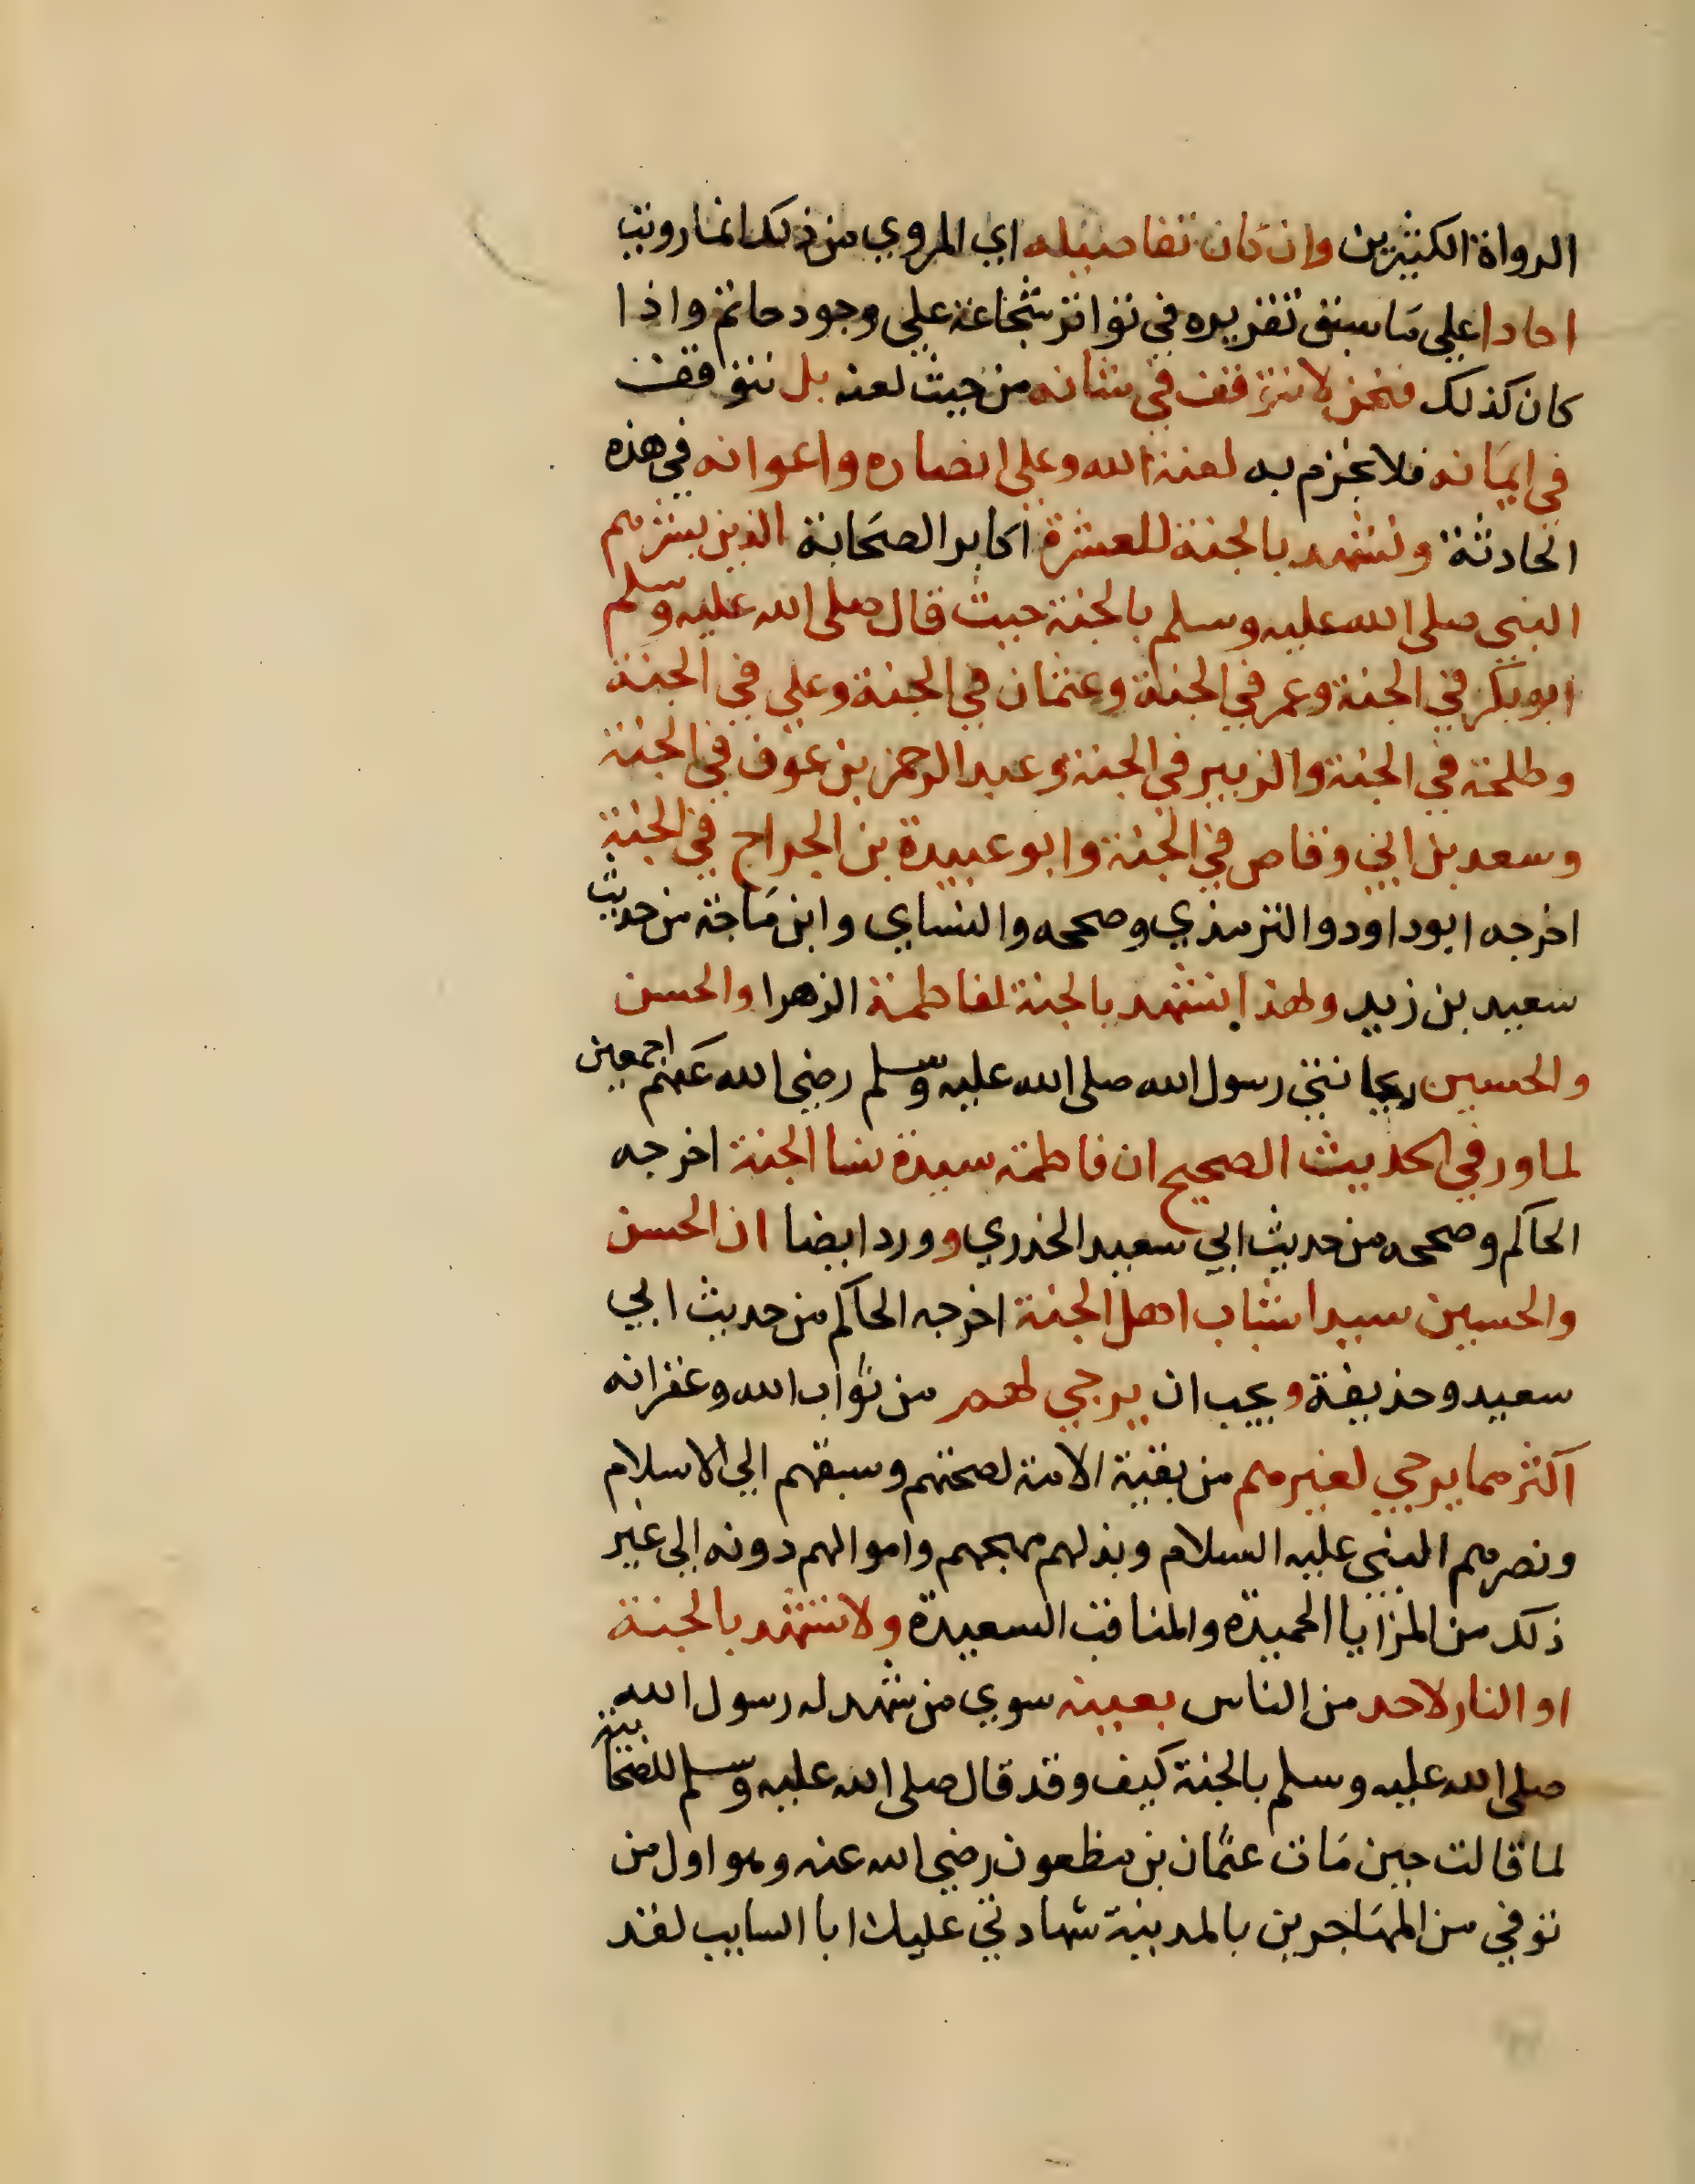 الرواة الكثيرين وان كان تفاصيله اي المروي من ذلك انما رويت
احادا علي ما سبق تقريره في تواتر شجاعة علي وجود حاتم واذا
كان كذلك فنحن لا نتوقف في شانه من حيث لعنه بل نتوقف
في ايمانه فلا نجزم به لعنة الله وعلي انصاره واعوانه في هذه
الحادثة ونشهد بالجنة للعشرة اكابر الصحابة الذين بشرهم
النبي صلي الله عليه وسلم بالجنة حيث قال صلي الله عليه وسلم
ابو بكر في الجنة وعمر في الجنة وعثمان في الجنة وعلي في الجنة
وطلحة في الجنة والزبير في الجنة وعبد الرحمن بن عوف في الجنة
وسعد بن ابي وقاص في الجنة وابو عبيدة بن الجراح في الجنة
اخرجه ابو داود والترمذي وصححه والنساي وابن ماجة من حديث
سعيد بن زيد ولهذا نشهد بالجنة لفاطمة الزهرا والحسن
والحسين ريحانتي رسول الله صلي الله عليه وسلم رضي الله عنهم اجمعين
لما ور في الحديث الصحيح ان فاطمة سيدة نسا الجنة اخرجه
الحاكم وصححه من حديث ابي سعيد الخدري وورد ايضا ان الحسن
والحسين سيدا شباب اهل الجنة اخرجه الحاكم من حديث ابي
سعيد وحذيفة ويجب ان يرجي لهم من ثواب الله وغفرانه
اكثر مما يرجي لغيرهم من بقية الامة لصحبتهم وسبقهم الي الاسلام
ونصرهم النبي عليه السلام وبذلهم مهجهم واموالهم دونه الي غير
ذلك من المزايا الحميدة والمناقب السعيدة ولا نشهد بالجنة
او النار لاحد من الناس بعينه سوي من شهد له رسول الله
صلي الله عليه وسلم بالجنة كيف وقد قال صلي الله عليه وسلم للصحابية
لما قالت حين مات عثمان بن مظعون رضي الله عنه وهو اول من
توفي من المهاجرين بالمدينة شهادتي عليك ابا السايب لقد